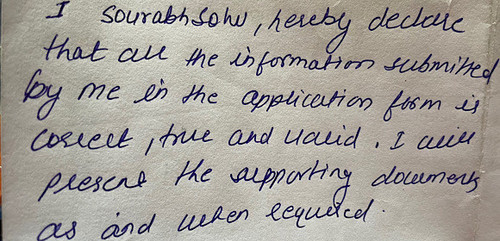 I sourabh sohu, hereby declare
that all the information submitted
by me in the application form is
correct, true and valid. I will
present the supporting documents
as and when required.